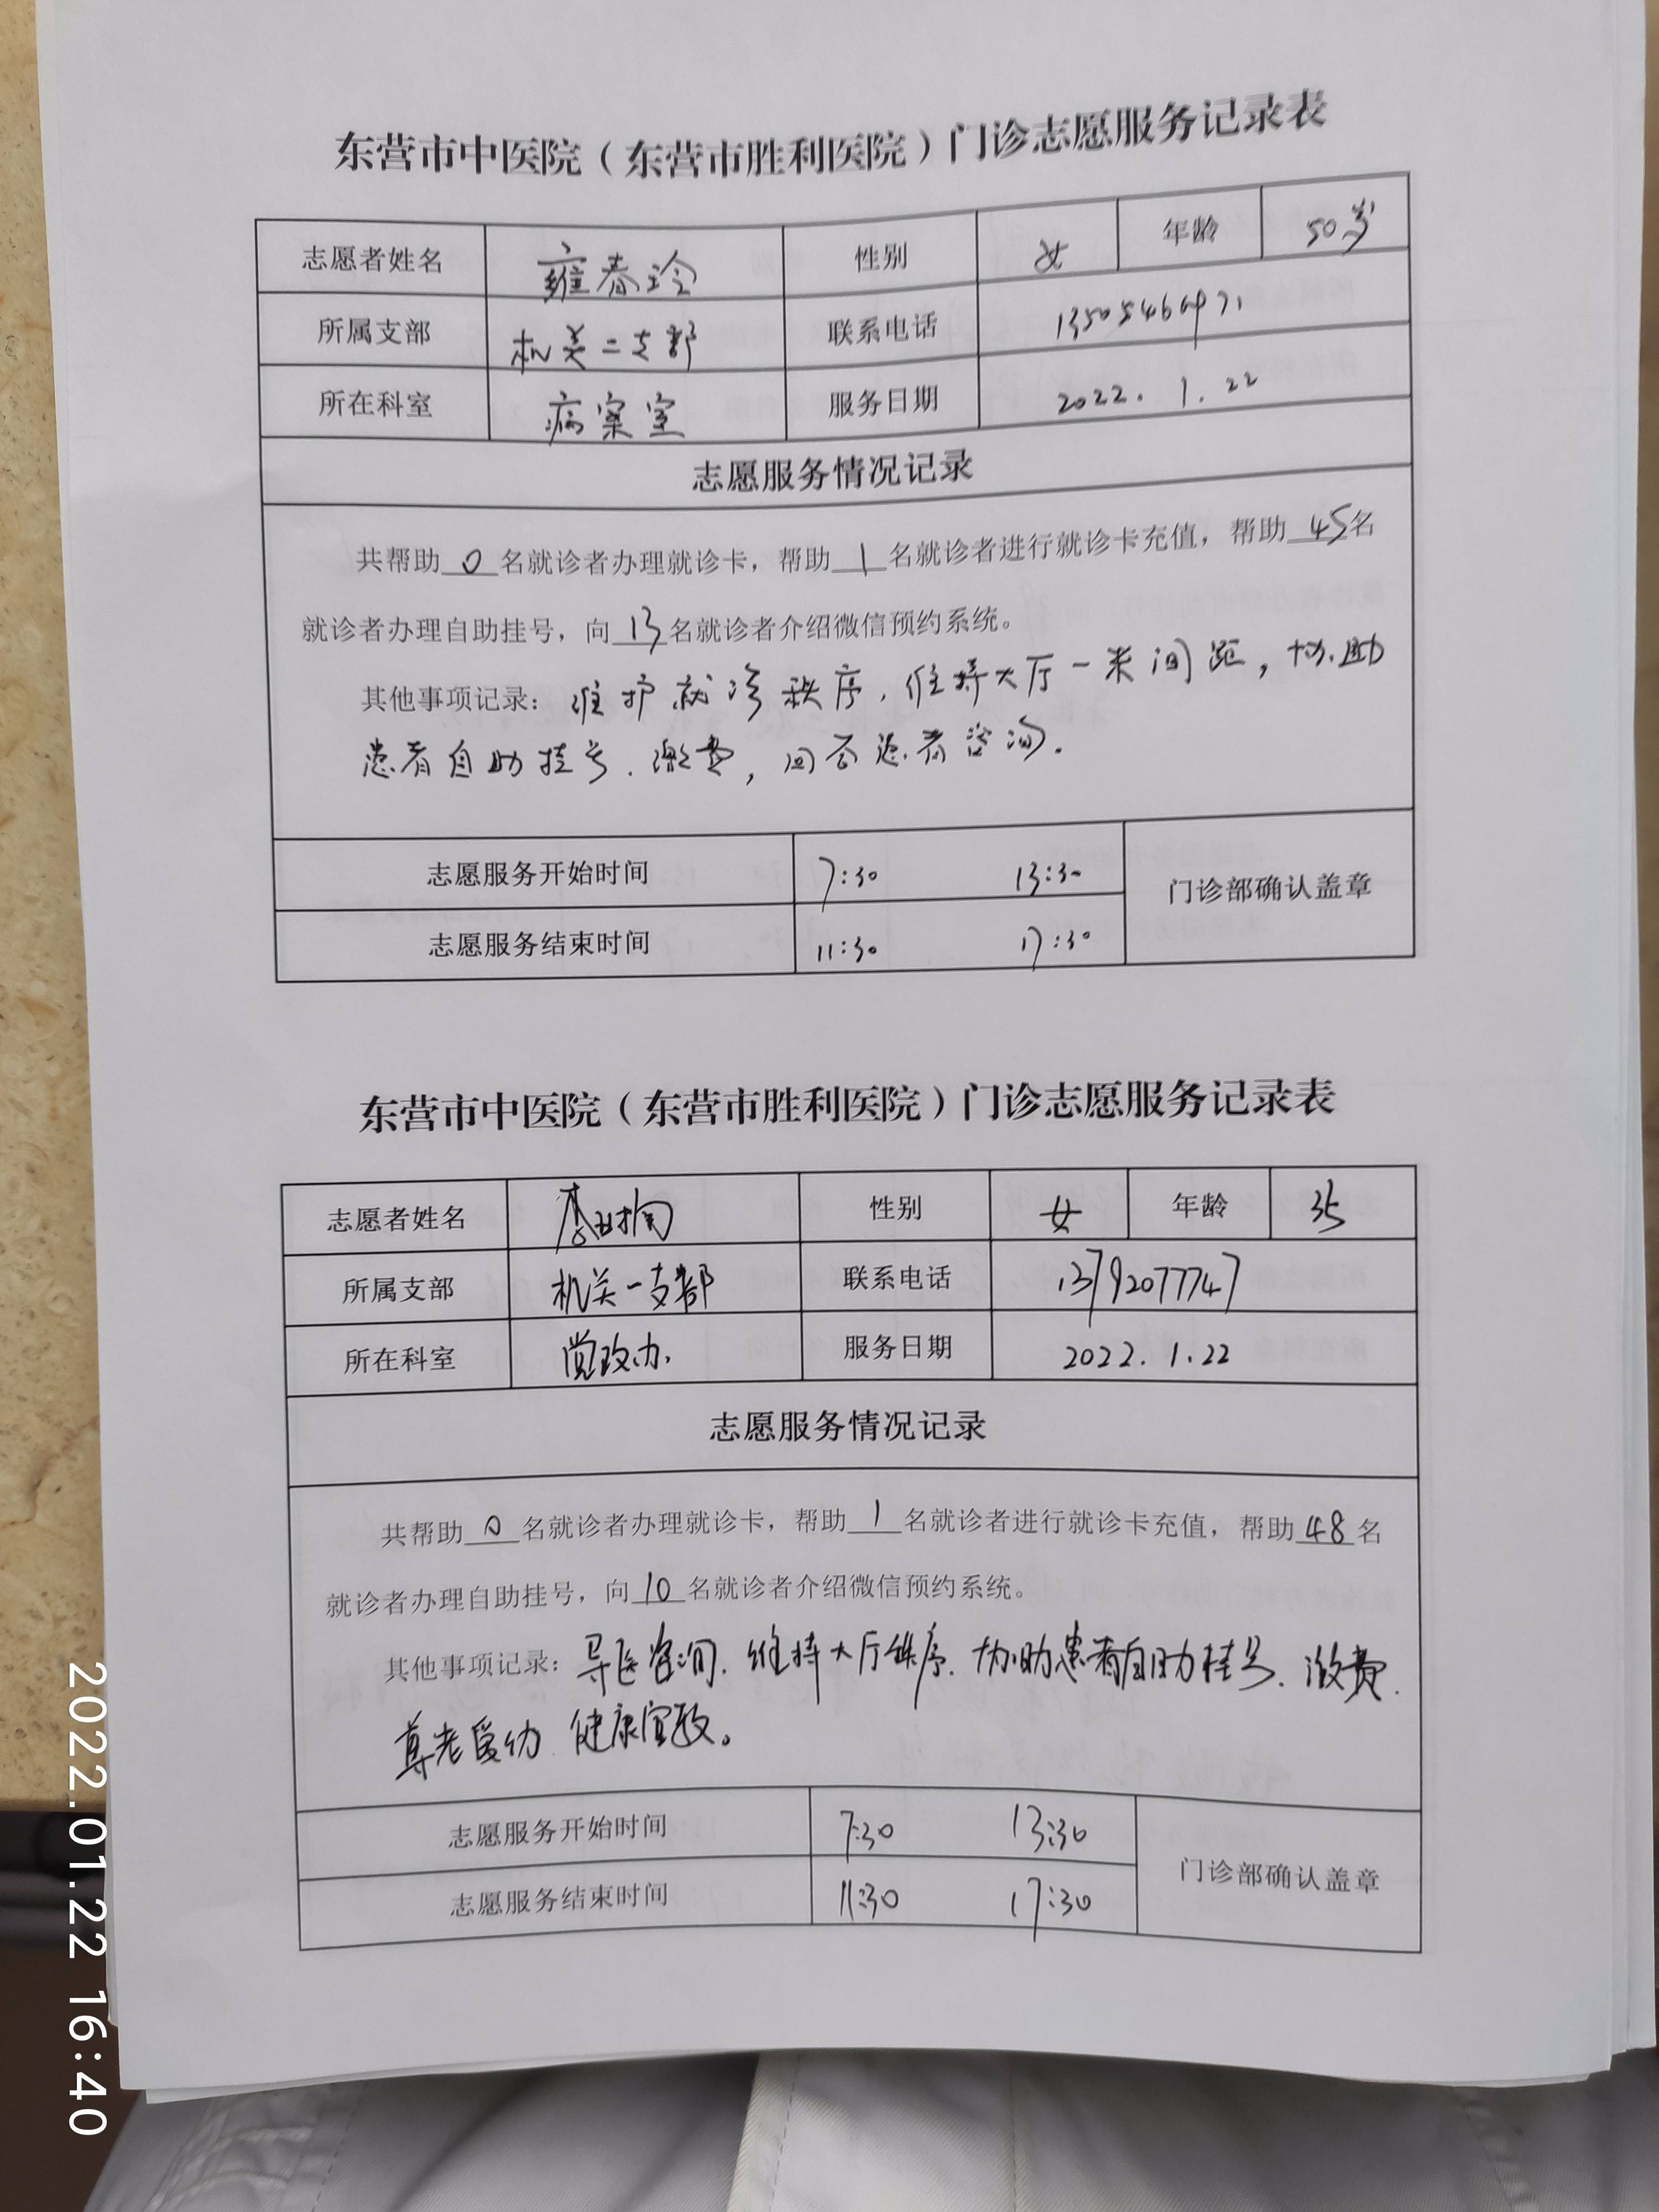 东营市中医院（东营市胜利医院）门诊志愿服务记录表
志愿者姓名 雍春玲 性别 女 年龄 50岁
所属支部 机关二支部 联系电话
所在科室 病案室 服务日期 2022.1.22
志愿服务情况记录
共帮助0名就诊者办理就诊卡，帮助1名就诊者进行就诊卡充值，帮助45名
就诊者办理自助挂号，向13名就诊者介绍微信预约系统。
其他事项记录：维护就诊秩序，保持大厅一米间距，协助
患者自助挂号、缴费，回答患者咨询。
志愿服务开始时间 7:30 13:30 门诊部确认盖章
志愿服务结束时间 11:30 17:30
东营市中医院（东营市胜利医院）门诊志愿服务记录表
志愿者姓名 性别 女 年龄 35
所属支部 机关一支部 联系电话 13792077747
所在科室 党政办 服务日期 2022.1.22
志愿服务情况记录
共帮助0名就诊者办理就诊卡，帮助1名就诊者进行就诊卡充值，帮助48名
就诊者办理自助挂号，向10名就诊者介绍微信预约系统。
其他事项记录：导医咨询、维持大厅秩序、协助患者自助挂号、缴费、
尊老爱幼 健康宣教。
志愿服务开始时间 7:30 13:30 门诊部确认盖章
志愿服务结束时间 11:30 17:30
2022.01.22 16:40